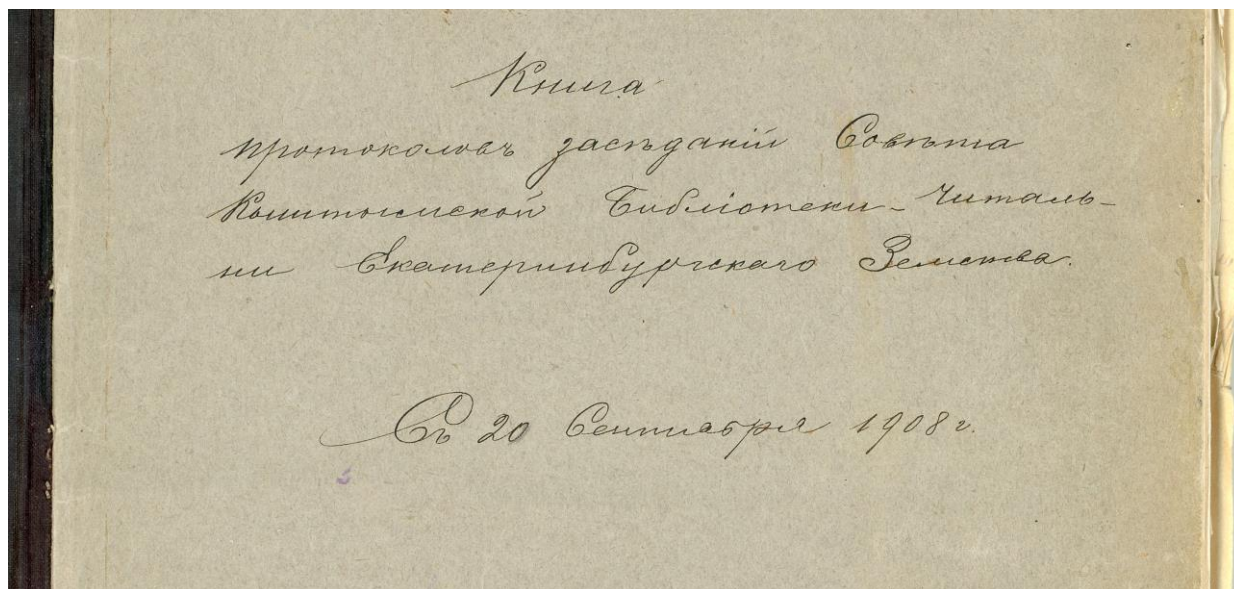 Книга
протоколовъ засѣданій Совѣта
Кыштымской Библіотеки-Читаль-
ни Екатеринбургскаго Земства.
Съ 20 Сентября 1908 г.